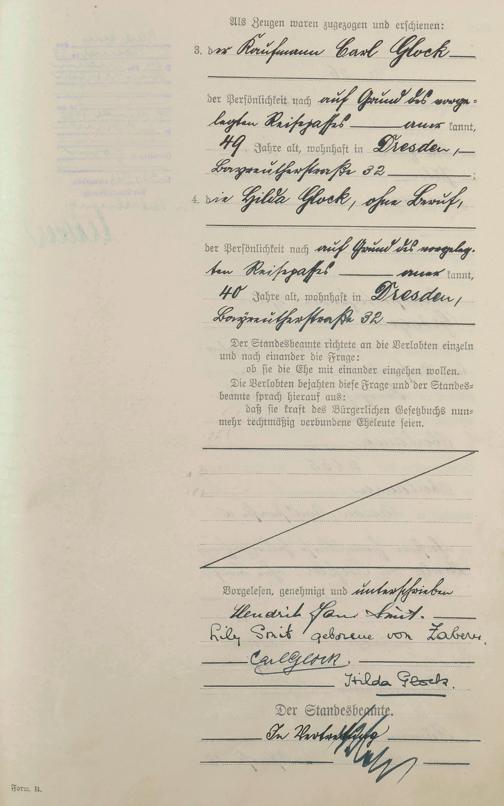 Als Zeugen waren zugezogen und erschienen:
3. der Kaufmann Carl Glock
der Persönlichkeit nach auf Grund des vorge-
legten Reisepasses anerkannt,
49 Jahre alt, wohnhaft in Dresden,
Bayreutherstraße 32;
4. die Hilda Glock, ohne Beruf,
der Persönlichkeit nach auf Grund des vorgeleg-
ten Reisepasses anerkannt,
40 Jahre alt, wohnhaft in Dresden,
Bayreutherstraße 32
Der Standesbeamte richtete an die Verlobten einzeln
und nach einander die Frage:
ob sie die Ehe mit einander eingehen wollen.
Die Verlobten bejahten diese Frage und der Standes-
beamte sprach hierauf aus:
daß sie kraft des Bürgerlichen Gesetzbuchs nun-
mehr rechtmäßig verbundene Eheleute seien.
Vorgelesen, genehmigt und unterschrieben
Hendrik Jan Smit.
Lily Smit geborene von Zabern.
Carl Glock.
Hilda Glock.
Der Standesbeamte.
In Vertretung
Form. B.